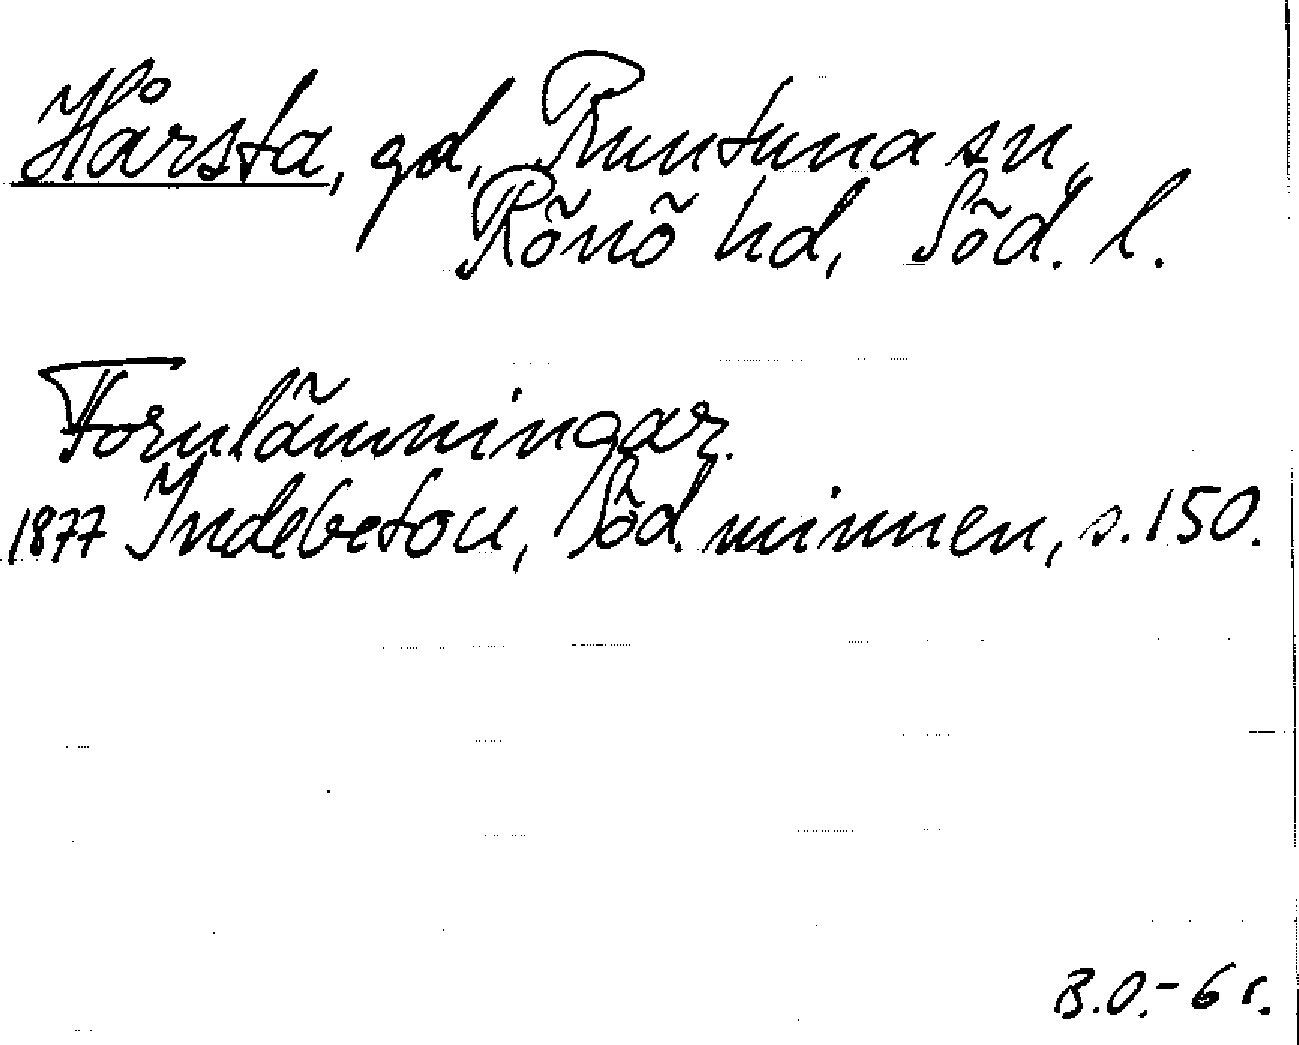 Hårsta, gd, Runtuna sn,
Rönö hd, Söd. l.
Fornlämningar.
1877 Indebetou, Söd. minnen, s. 150.
B.O.-61.